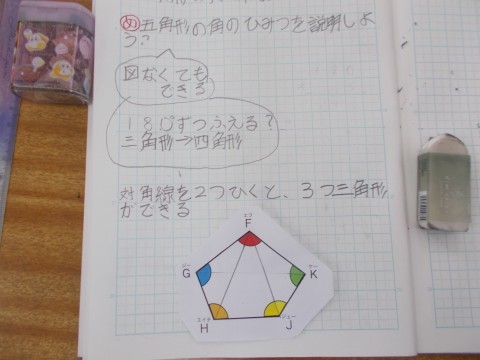 め 五角形の角のひみつを説明しよ
う?
図なくても
できる
180°ずつふえる?
三角形→四角形
対角線を2つひくと、3つ三角形
ができる
エフ
F
ジー
G
ケー
K
エイチ
H
ジェー
J